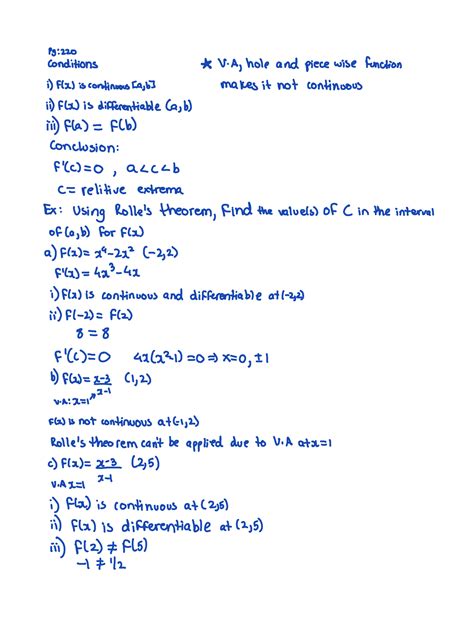 Pg:220
Conditions
* V.A, hole and piece wise function
makes it not continuous
i) F(x) is continuous [a,b]
ii) F(x) is differentiable (a,b)
iii) F(a) = F(b)
Conclusion:
F'(c)=0 , a<c<b
c= relitive extrema
Ex: Using Rolle's theorem, Find the value(s) of C in the interval
of (a,b) for F(x)
a) F(x)= x⁴-2x² (-2,2)
F'(x) = 4x³-4x
i) F(x) is continuous and differentiable at (-2,2)
ii) F(-2) = F(2)
8 = 8
F'(c)=0 4x(x²-1) =0 ⇒ x=0, ±1
b) F(x) = x-3/x-1 (1,2)
V.A: x=1
F(x) is not continuous at (-1,2)
Rolle's theorem can't be applied due to V.A at x=1
c) F(x)= x-3/x-1 (2,5)
V.A x=1
i) F(x) is continuous at (2,5)
ii) F(x) is differentiable at (2,5)
iii) F(2) ≠ F(5)
-1 ≠ 1/2